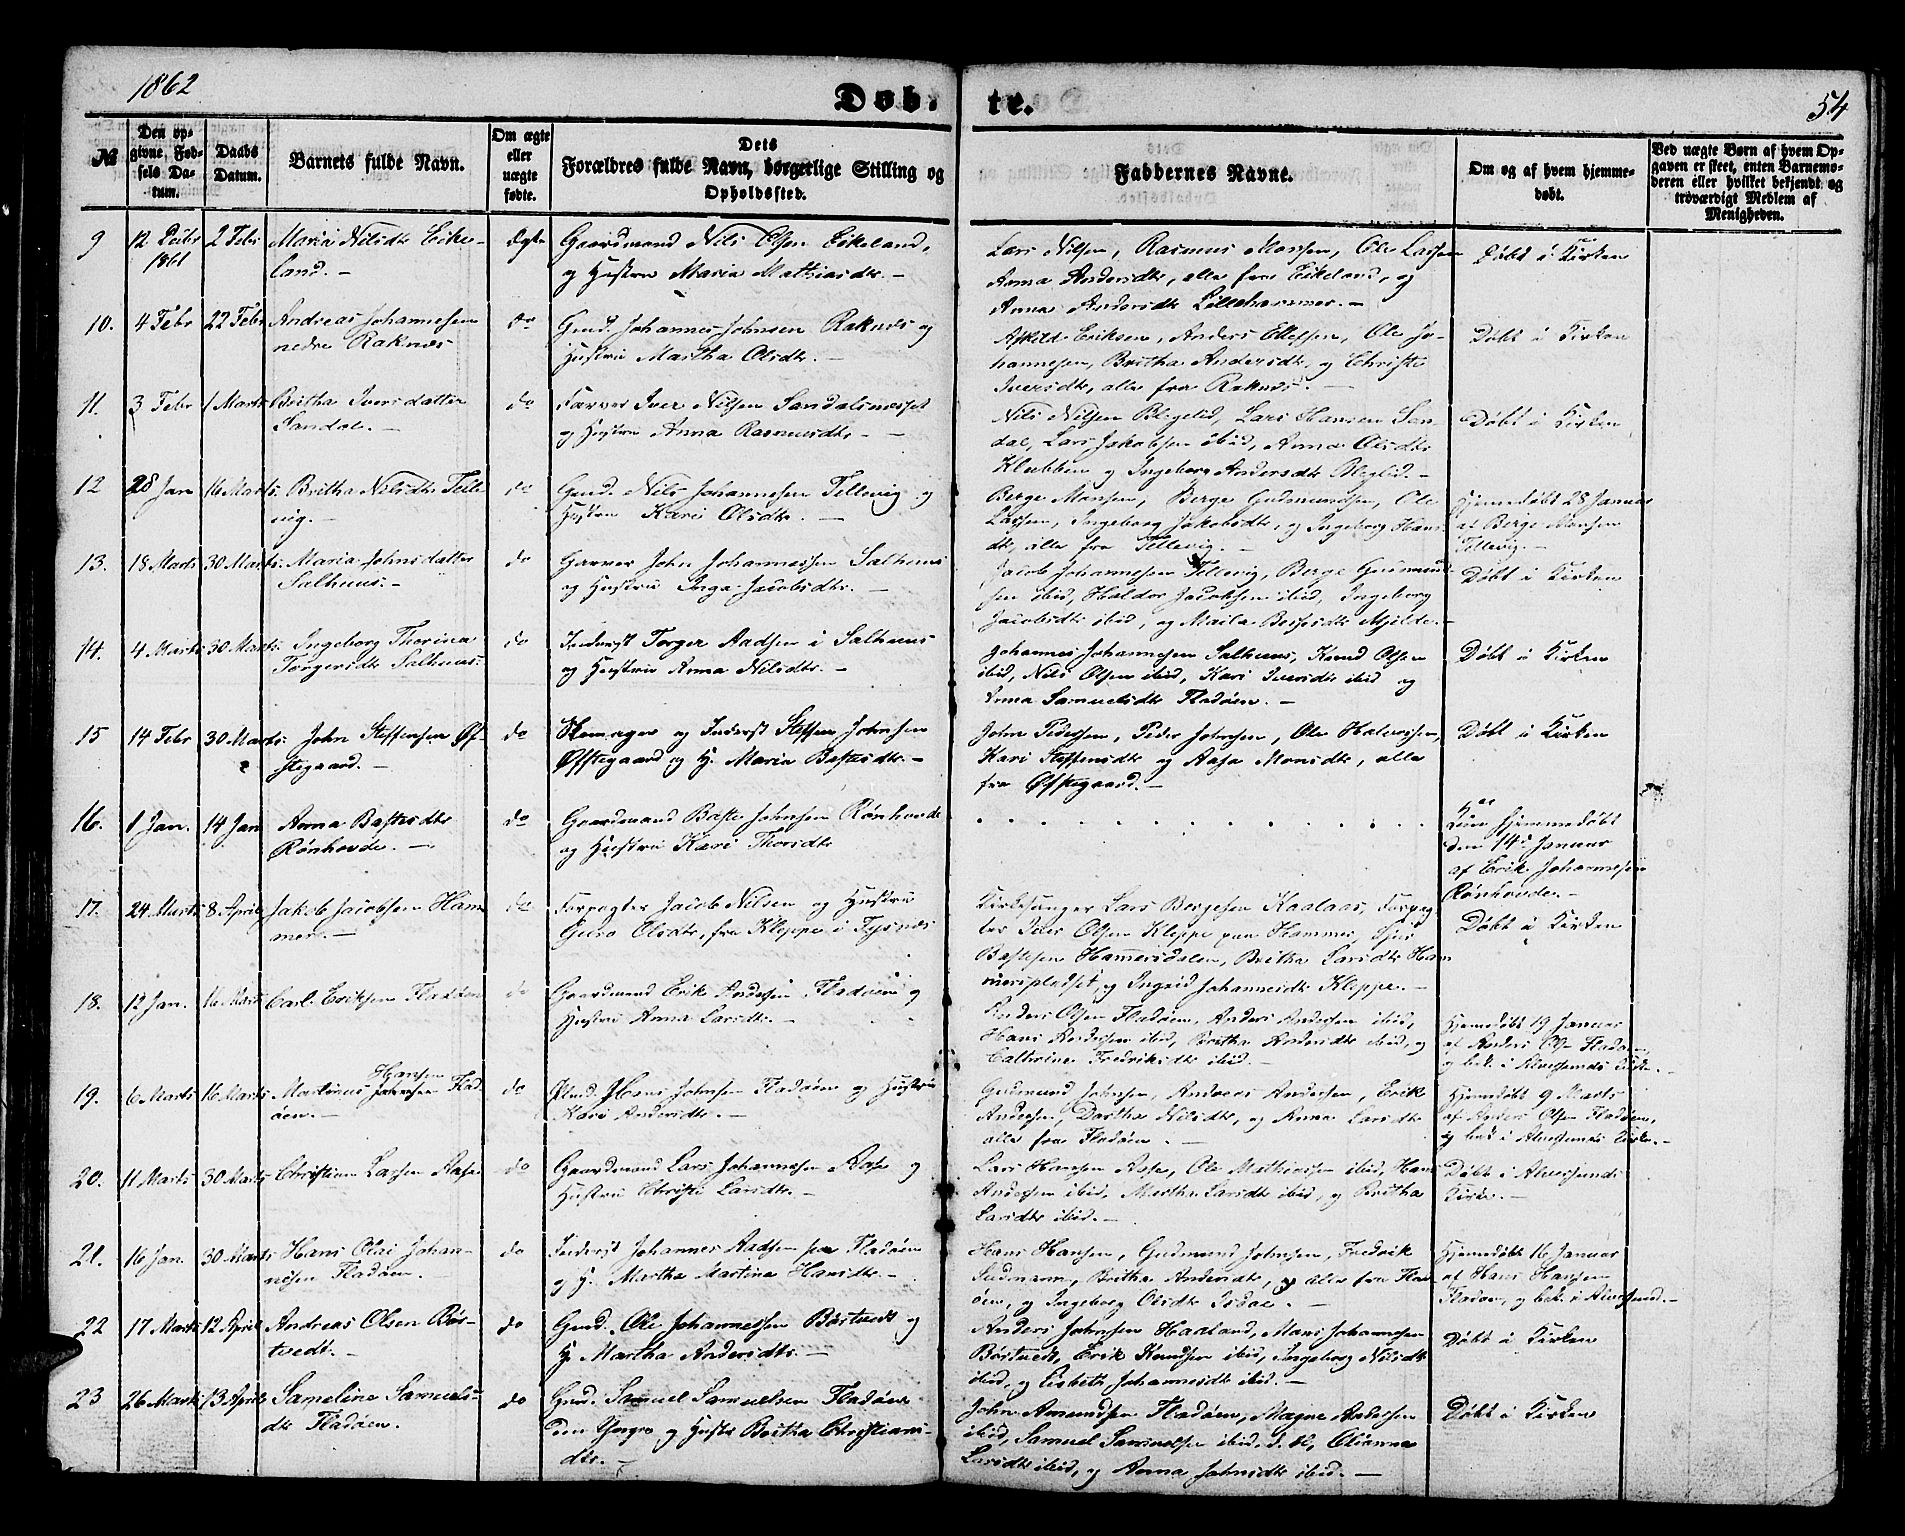 1862
Døb-
te.
54
№
Den op-
givne Fød-
sels Da-
tum.
Daabs
Datum.
Barnets fulde Navn.
Om ægte
eller
uægte
fødte.
Dets
Forældres fulde Navn, borgerlige Stilling og
Opholdssted.
Faddernes Navne.
Om og af hvem hjemme-
døbt.
Ved uægte Børn af hvem Op-
gaven er skeet, enten Barnemo-
deren eller hvilket bekjendt og
troværdigt Medlem af
Menigheden.
9
12 Decbr
1861
2 Febr
Maria Nilsdtr Eike-
land. -
Ægte
Gaardmand Nils Olsen Eikeland,
og Hustru Maria Mathiasdtr. -
Lars Nilsen, Rasmus Monsen, Ole Larsen
Anna Andersdtr, alle fra Eikeland, og
Anna Andersdtr Lillehammer. -
Døbt i Kirken
10.
4 Febr
22 Febr
Andreas Johannesen
nedre Raknes
do
Gmd. Johannes Johnsen Raknes og
Hustru Martha Olsdtr. -
Askild Eriksen, Anders Ellefsen, Ole Jo-
hannesen, Britha Andersdtr, og Christi
Iversdtr, alle fra Raknes. -
Døbt i Kirken
11.
3 Febr
1 Marts
Britha Iversdatter
Sandal. -
do
Farver Iver Nilsen Sandalsnesset
og Hustru Anna Rasmusdtr. -
Nils Nilsen Bleglid, Lars Hansen San-
dal, Lars Jakobsen ibid, Anna Olsdtr
Klubben og Ingeborg Andersdtr Bleglid. -
Døbt i Kirken
12
28 Jan
16 Marts
Britha Nilsdtr Telle-
vig. -
do
Gmd. Nils Johannesen Tellevig og
Hustru Kari Olsdtr. -
Berge Monsen, Berge Gudmundsen, Ole
Larsen, Ingeborg Jakobsdtr, og Ingeborg Hans-
dtr, alle fra Tellevig. -
Hjemmedøbt 28 Januar
af Berge Monsen
Tellevig. -
13.
18 Marts
30 Marts
Maria Johnsdatter
Salhuus. -
do
Garver John Johannessen Salhuus
og Hustru Inga Jacobsdtr. -
Jacob Johannesen Tellevig, Berge Gudmund-
sen ibid, Haldor Jacobsen ibid, Ingeborg
Jacobsdtr ibid, og Mjelde. -
Døbt i Kirken
14.
4 Marts
30 Marts
Ingeborg Thorina
Torgersdtr Salhuus.
do
Inderst Torger Aadsen i Salhuus
og Hustru Anna Nilsdtr. -
Johannes Johannesen Salhuus, Knud Olsen
ibid, Nils Olsen ibid, Kari Iversdtr ibid og
Anna Samuelsdtr Fladøen. -
Døbt i Kirken
15
14 Febr
30 Marts
John Steffensen Øf-
stegaard. -
do
Skomager og Inderst Steffen Johnsen
Øfstegaard og H. Maria Bastesdtr. -
John Pedersen, Peder Johnsen, Ole Halvorsen,
Kari Steffensdtr og Aasa Monsdtr, alle
fra Øfstegaard. -
Døbt i Kirken
16.
1 Jan.
14 Jan
Anna Bastesdtr
Rønhovde. -
do
Gaardmand Baste Johnsen Rønhovde
og Hustru Kari Thorsdtr
Kun hjemmedøbt
den 14 Januar
af Erik Johannesen
Rønhovde. -
17.
24 Marts
8 April
Jakob Jacobsen Ham-
mer. -
do
Forpagter Jacob Nilsen og Hustru
Guro Olsdtr, fra Kleppe i Tysnes
Kirkesanger Lars Bergesen Kaalaas, Forpag-
ter Peder Olsen Kleppe paa Hammer, Sjur
Bastesen Hamersdalen, Britha Larsdtr Ham-
merspladset, og Ingrid Johannesdtr Kleppe. -
Døbt i Kirken
18.
12 Jan.
16 Marts
Carl Eriksen Fladøen
do
Gaardmand Erik Andersen Fladøen og
Hustru Anna Larsdtr. -
Anders Olsen Fladøen, Anders Andersen ibid,
Hans Andersen ibid, Britha Andersdtr ibid, og
Cathrine Fredriksdtr ibid. -
Hjemmedøbt 19 Januar
af Anders Olsen Fladøen,
og bek. i Alversunds Kirke. -
19.
6 Marts
16 Marts
Martinus Johnsen Flad-
Hansen
øen. -
do
Gmd. Hans Johnsen Fladøen og Hustru
Kari Andersdtr. -
Gudmund Johnsen, Anders Andersen, Erik
Andersen, Dorthe Nilsdtr, og Anna Larsdtr
alle fra Fladøen. -
Hjemmedøbt 9 Marts
af Anders Olsen Fladøen,
og bek i Alversunds Kirke. -
20.
11 Marts
30 Marts
Christian Larsen Aase
do
Gaardmand Lars Johannesen Aase og
Hustru Christi Larsdtr. -
Lars Hansen Aase, Ole Mathiassen ibid, Hans
Andersen ibid, Martha Larsdtr ibid, og Britha
Larsdtr ibid. -
Døbt i Alversunds
Kirke. -
21.
16 Jan.
30 Marts
Hans Olai Johan-
nesen Fladøen.
do
Inderst Johannes Aadsen paa Fladøen
og H. Martha Martina Hansdtr. -
Hans Hansen, Gudmund Johnsen, Fredrik
Britha Andersdtr, og alle fra Flad-
øen, og Ingeborg Olsdtr Isdal. -
Hjemmedøbt 16 Januar
af Hans Hansen
Fladøen, og bek. i Alversund. -
22
17 Marts
12 April
Andreas Olsen Børs-
tvedt. -
do
Gmd. Ole Johannessen Børstvedt og
H. Martha Andersdtr. -
Anders Johnsen Haaland, Mons Johannesen
Børstvedt, Erik Knudsen ibid, Ingeborg Nilsdtr
ibid, og Lisbeth Johannesdtr ibid. -
Døbt i Kirken
23
26 Marts
13 April
Sameline Samuels-
dtr Fladøen.
do
Gmd. Samuel Samuelsen Fladøen
den Yngre og Hustru Britha Christians-
dtr. -
John Amundsen Fladøen, Magne Andersen
ibid, Samuel Samuelsen ibid, Olianna
Larsdtr ibid, og Anna Johnsdtr ibid. -
Døbt i Kirken